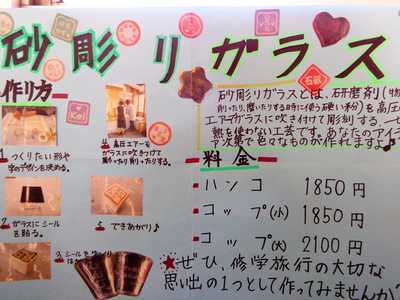 砂彫りガラス
作り方
1. つくりたい形や
字のデザインを決める。
2. ガラスにシール
を貼る。
3. シールを
4. 高圧エアーを
ガラスに吹きつけて
5. できあがり♪
Kei
石砂
砂彫りガラスとは、石研磨剤(物
削ったり、磨いたりする時に使う硬い粉)を高圧の
エアーでガラスに吹き付けて彫刻する
熱を使わない工芸です。あなたのアイデ
ア次第で色々なものが作れます。♪
料金
ハンコ 1850円
コップ(小) 1850円
コップ(大) 2100円
★ぜひ、修学旅行の大切な
思い出の1つとして作ってみませんか?